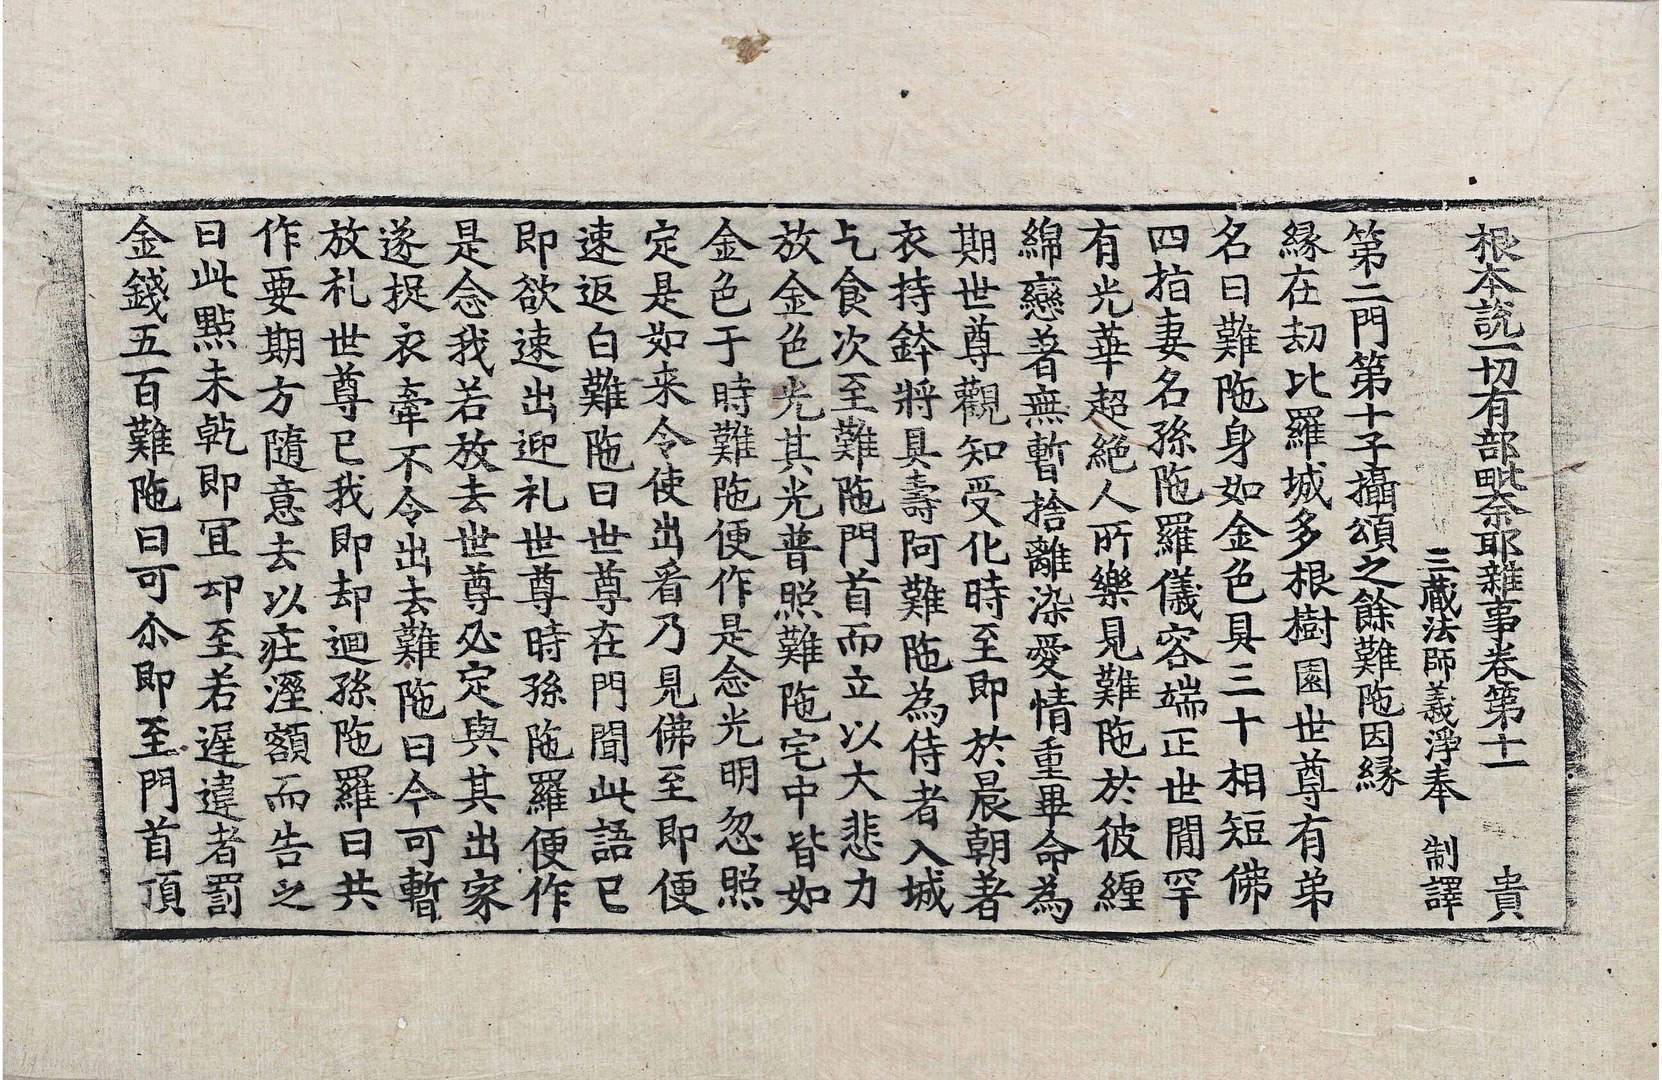 根本說一切有部毗柰耶雜事卷第十一 貴
三藏法師義淨奉 制譯
第二門第十子攝頌之餘難陁因緣
緣在劫比羅城多根樹園世尊有弟
名曰難陁身如金色具三十相短佛
四指妻名孫陁羅儀容端正世閒罕
有光華超絕人所樂見難陁於彼纏
綿戀著無暫捨離染愛情重畢命為
期世尊觀知受化時至即於晨朝著
衣持鉢將具壽阿難陁為侍者入城
乞食次至難陁門首而立以大悲力
放金色光其光普照難陁宅中皆如
金色于時難陁便作是念光明忽照
定是如来令使出看乃見佛至即便
速返白難陁曰世尊在門聞此語已
即欲速出迎礼世尊時孫陁羅便作
是念我若放去世尊必定與其出家
遂捉衣牽不令出去難陁曰今可暫
放礼世尊已我即却迴孫陁羅曰共
作要期方隨意去以粧溼額而告之
曰此點未乾即冝却至若遲違者罰
金錢五百難陁曰可尒即至門首頂